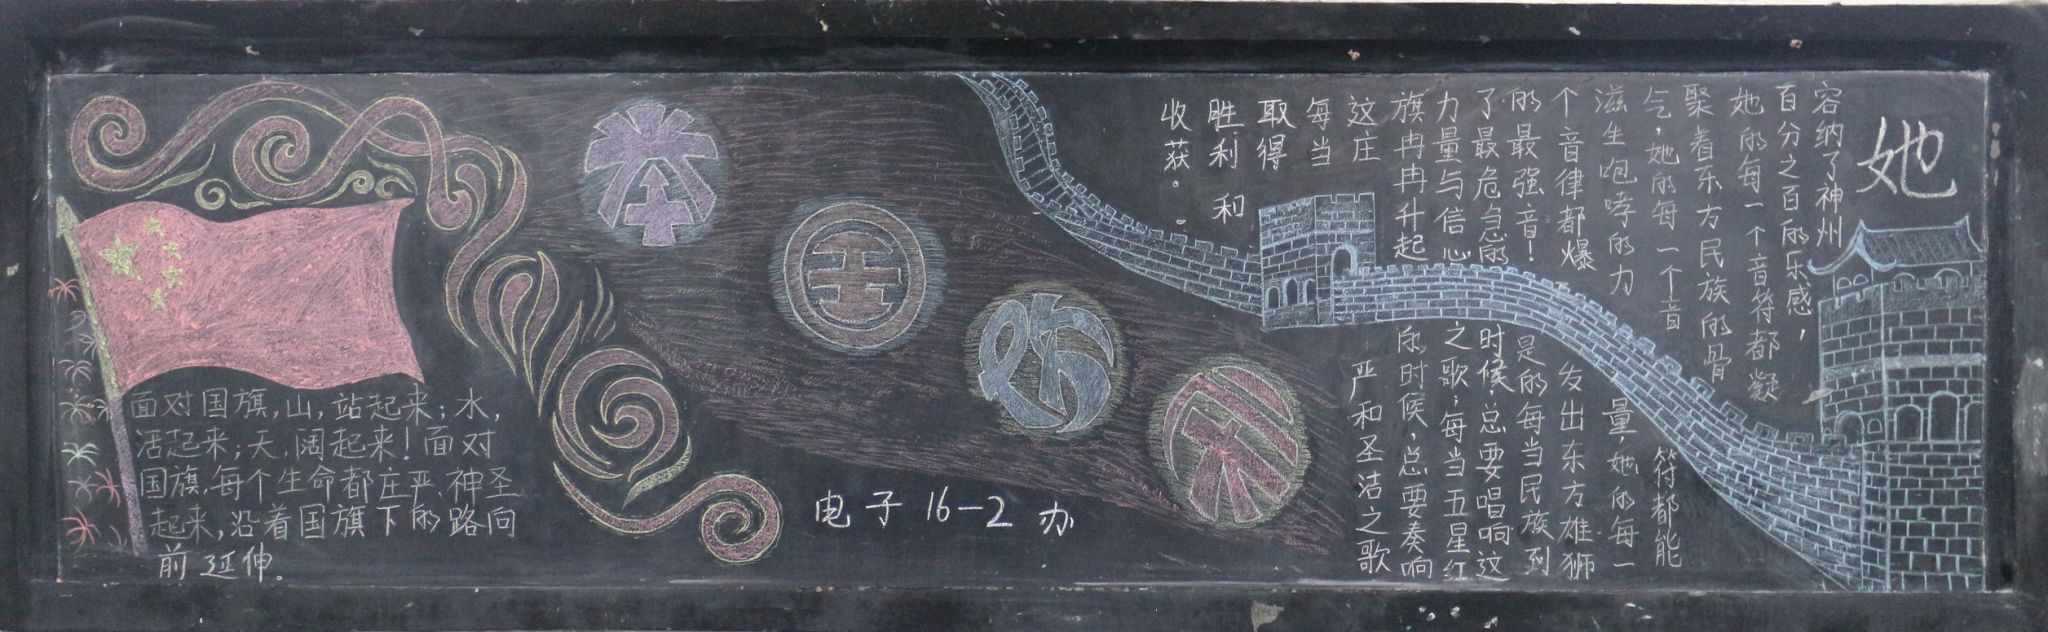 面对国旗,山,站起来;水,
活起来;天,阔起来!面对
国旗,每个生命都庄严、神圣
起来,沿着国旗下的路向
前延伸。
电子16-2办
她
容纳了神州
百分之百的乐感,
她的每一个音符都凝
聚着东方民族的骨
气,她的每一个音符都能
滋生咆哮的力量,她的每一
个音律都爆发出东方雄狮
的最强音!是的每当民族到
了最危急的时候,总要唱响这
力量与信心之歌;每当五星红
旗冉冉升起的时候,总要奏响
这庄严和圣洁之歌
每当
取得
胜利和
收获。